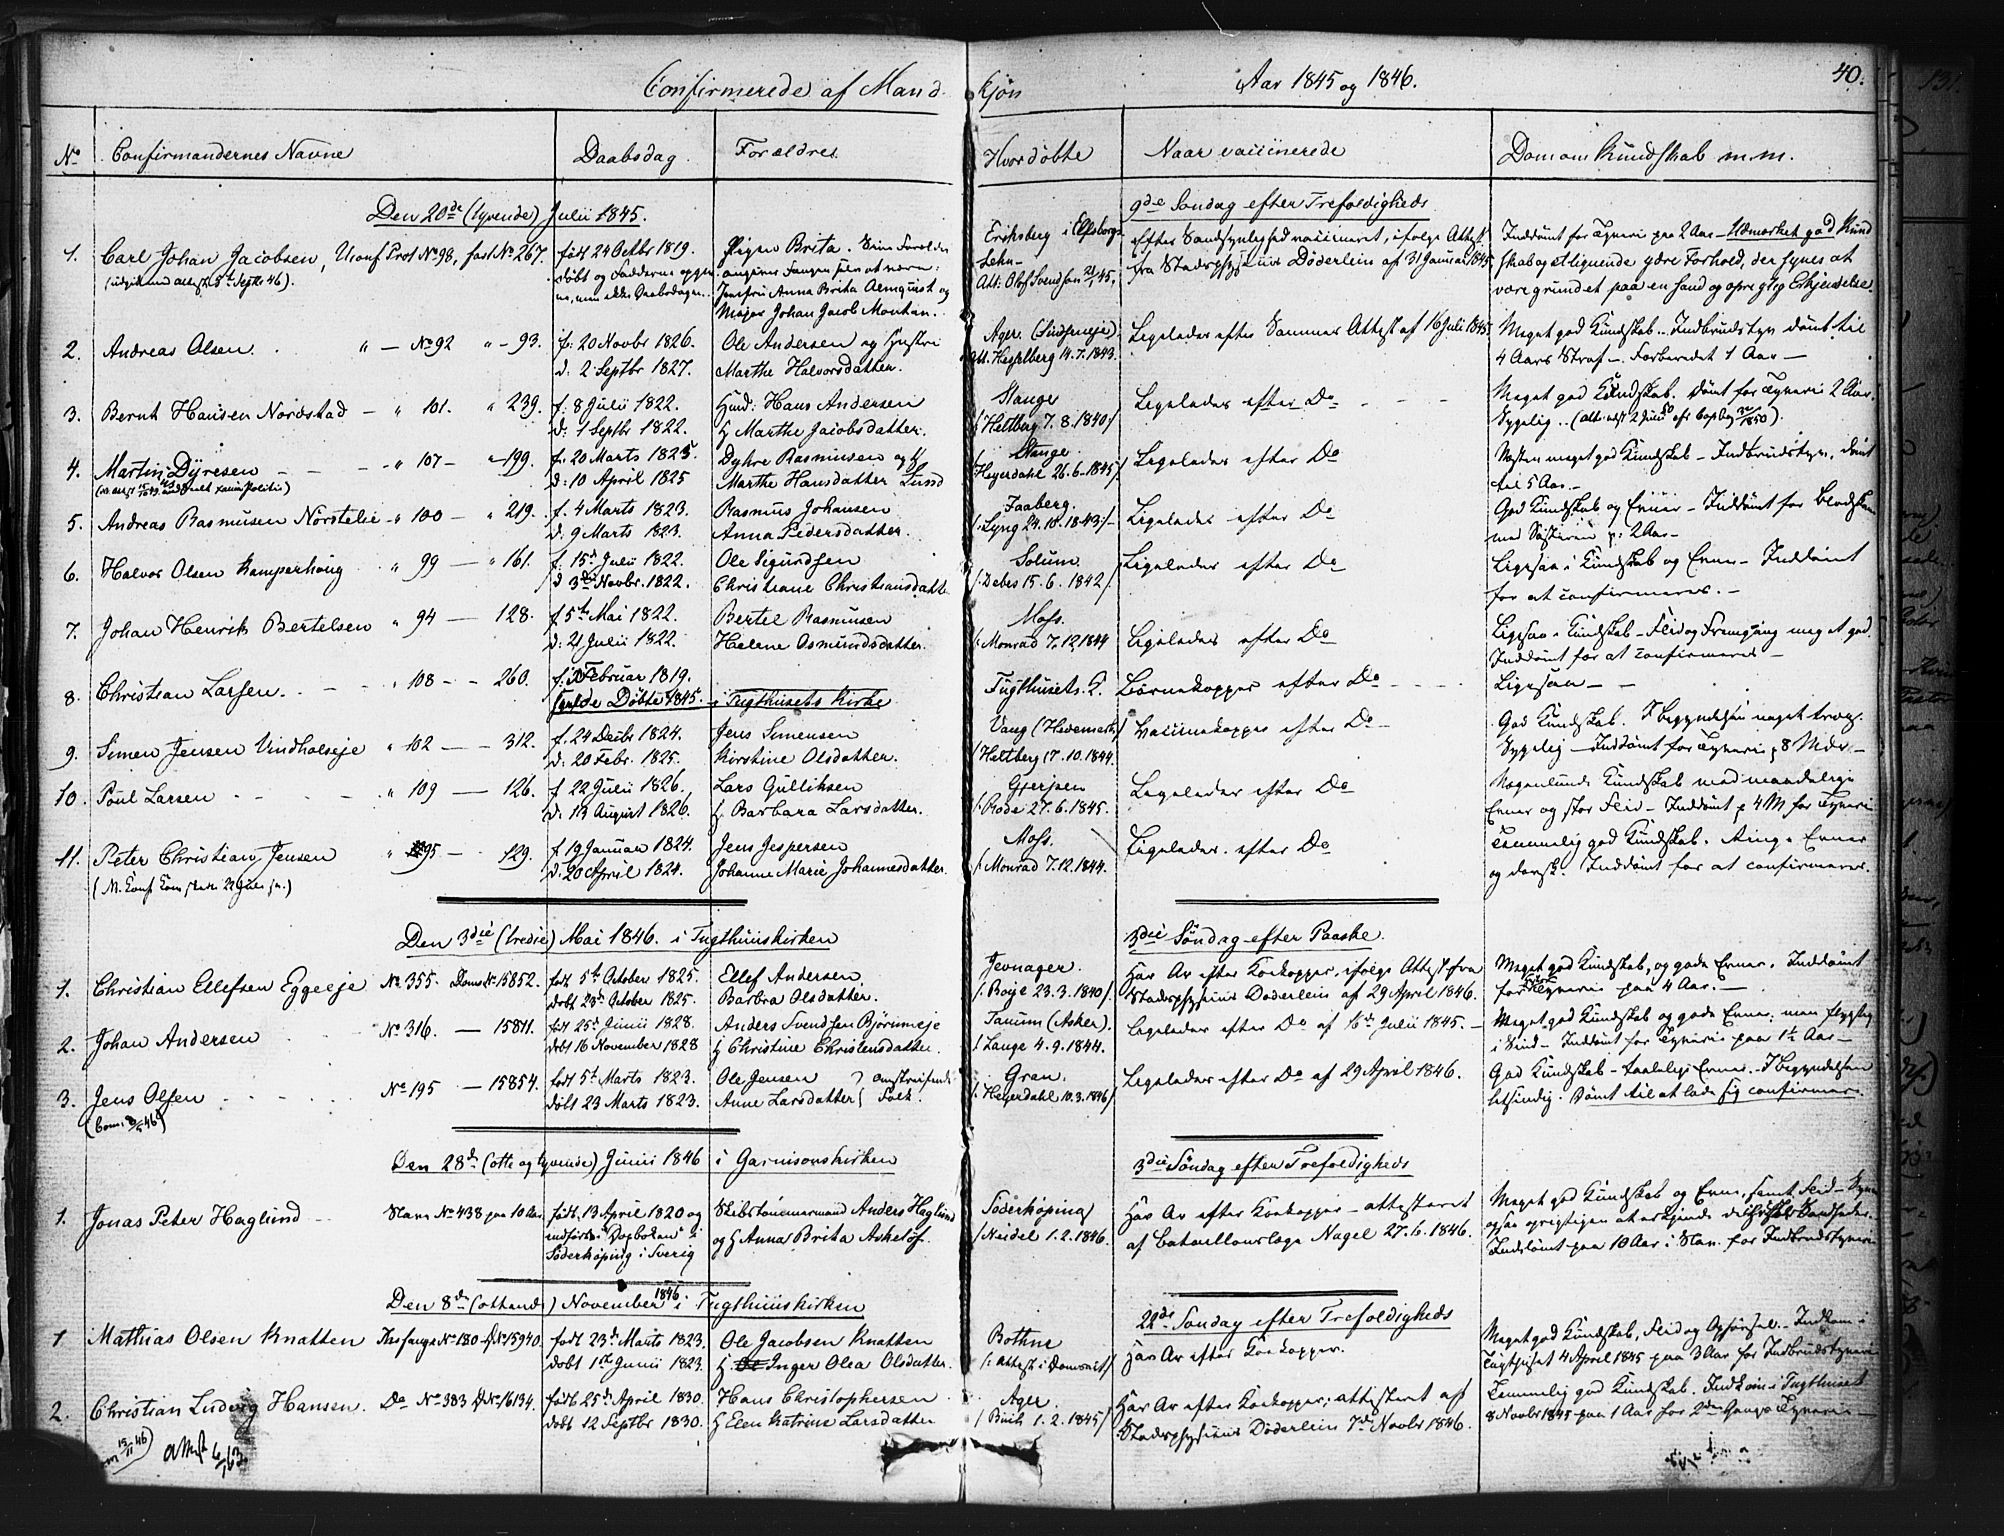 Confirmerede af Mand kjøn Aar 1845 og 1846. 40.
No Confirmandernes Navne Daabsdag Forældre Hvor døbte Naar vaccinerede Dom om Kundskab m.m.
Den 20de (tyvende) Julii 1845. 9de Søndag efter Trefoldigheds
1. Carl Johan Jacobsen, Uconf Prot No 98, fort No 267. født 24 Octbr 1819. Pigen Brita. Sine Forældre Eriksberg i Elfsborgs efter Sandsynlighed vaccineret, ifølge Attest Inddømt for Tyveri paa 2 Aar – Udmærket god Kund
døbt og Fadderne opgiv angiver Fangen selv at være: Lehn – fra Stadsphysicus Døderlein af 31 Januar 1845 skab og et lignende ydre Forhold, der synes at
ne, men ikke Daabsdagen. Jomfru Anna Brita Almquist og Att: Olof Svendsen være grundet paa en sand og oprigtig Erkjendelse.
Major Johan Jacob Montan.
2. Andreas Olsen. " – No 92 " – 93. f: 20 Novbr 1826. Ole Andersen og Hustru Ager. Ligeledes efter Sammes Attest af 16 Juli 1845. Meget god Kundskab – Indbrudstyv dømt til
d: 2 Septbr 1827. Marthe Halvorsdatter. Att. Hesselberg 14.7.1843. 4 Aars Straf – Forberedet 1 Aar –
3. Bernt Hansen Nordstad – " 101. " 239. f: 8 Julii 1822. Husd: Hans Andersen Stange Ligeledes efter Do Meget god Kundskab. Dømt for Tyveri 2 Aar.
d: 1 Septbr 1822. H Marthe Jacobsdatter. /: Heltberg 7.8.1840:/ Sygelig..
4. Martin Dyresen – " 107 – " 199. f: 20 Marts 1825 Dyhre Rasmusen og H Stange Ligeledes efter Do Næsten meget god Kundskab – Indbrudstyv, dømt
d: 10 April 1825 Marthe Hansdatter Lund Heyerdahl 26.6.1845/ til 5 Aar –
5. Andreas Rasmusen Norstelie – " 100 – " 219. f. 4 Marts 1823. Rasmus Johansen Faaberg. Ligeledes efter Do God Kundskab og Evner – Inddømt for Blodskam
d: 9 Marts 1823. Anna Pedersdatter. /: Lyng 24.10.1843:/ med Søsteren p: 2 Aar –
6. Halvor Olsen Kamperhoug " 99 – " 161. f. 15de Julii 1822. Ole Sigurdsen Solum Ligeledes efter Do Ligesaa i Kundskab og Evner – Inddømt
d 3de Novbr. 1822. Christiane Christiansdatter /: Debes 15.6.1842/. for at confirmeres. –
7. Johan Henrik Bertelsen " 94 – 128. f 5te Mai 1822. Bertel Rasmusen Moss. Ligeledes efter Do Ligesaa i Kundskab – Flid og Fremgang meget god.
d: 21 Julii 1822. Helene Osmundsdatter. /: Monrad 7.12.1844 Inddømt for at confirmeres –
8. Christian Larsen. – " 108 – 260. f: Februar 1819. Tugthusets K. Børnekopper efter Do Ligesaa –
Døbte 1845. i Tugthusets Kirke
9. Simen Jensen Vindholseje " 102 – 312. f. 24 Decbr 1824. Jens Simensen Vang (Hedemark) Vaccinekopper efter Do – God Kundskab. I Begyndelsen noget træg.
d: 20 Febr. 1825. Kirstine Olsdatter. /Heltberg 17.10.1844. Sygelig – Inddømt for Tyveri p 8 Mdr. –
10. Poul Larsen – " 109 – 126. f 22 Junii 1826. Lars Gulliksen Gjerpen Ligeledes efter Do Nogenlunde Kundskab med maadelige
d. 13 August 1826. H. Barbara Larsdatter. /: Rode 27.6.1845. Evner og stor Flid – Inddømt p 4 M for Tyveri
11. Peter Christian Jensen " 95 – 129. f 19 Januar 1824. Jens Jespersen Moss. Ligeledes efter Do Temmelig god Kundskab. Ringe Evner
d: 20 April 1824. Johanne Marie Johannesdatter /: Monrad 7.12.1844. og dorsk. Inddømt for at confirmeres.
Den 3die (tredie) Mai 1846. i Tugthuuskirken 3die Søndag efter Paaske.
1. Christian Ellefsen Eggeeje No 355. Doms No 15852. født 5te October 1825. Ellef Andersen Jevnager. Har Ar efter Kokopper, ifølge Attest fra Meget god Kundskab, og gode Evner. Inddømt
døbt 28de October 1825. Barbra Olsdatter. /: Boije 23.3.1840/ Stadsphysicus Døderlein af 29 April 1846. for Tyveri paa 4 Aar. –
2. Johan Andersen No 316. – 15811. født 25de Junii 1828. Anders Svendsen Bjørumeje Tanum (Asker). Ligeledes efter Do af 16de Julii 1845. – Meget god Kundskab og gode Evner, men flygtig
døbt 16 November 1828 H Christine Christensdatter. /: Lange 4.9.1844. i Sind – Inddømt for Tyveri paa 1½ Aar –
3. Jens Olsen No 195 – 15854. født 5te Marts 1823. Ole Jensen } omstreifende Gran. Ligeledes efter Do af 29 April 1846. God Kundskab – taalelige Evner – I Begyndelsen
døbt 23 Marts 1823. Anne Larsdatter } Folk. /: Heyerdahl 10.3.1846/ letsindig. Dømt til at lade sig confirmere.
Den 28de (otte og tyvende) Junii 1846 i Garnisonskirken 3die Søndag efter Trefoldigheds
1. Jonas Peter Haglund – Slave No 438 paa 10 Aar. født 13 April 1820 og Skibstømmermand Anders Haglund Söderköping Har Ar efter Kokopper – attesteret Meget god Kundskab og Evner, samt Flid –
indført i Dogboken i og H Anna Brita Askelöf. /Neidel 1.2.1846. af Bataillonslæge Nagel 27.6.1846.
Söderköping i Sverig Inddømt paa 10 Aar i Slav. for Indbrudstyveri
Den 8de (ottende) November 1846 i Tugthuuskirken 22de Søndag efter Trefoldigheds
1 Mathias Olsen Knatten Thsfange No 180 D No 15940. født 23de Marts 1823. Ole Jacobsen Knatten Bothne Har Ar efter Kokopper. Meget god Kundskab, Flid og Opførsel. – Indkom i
døbt 1ste Junii 1823. H Inger Olea Olsdatter. /: Attest i Domsact/ Tugthuset 4 April 1845 paa 3 Aar for Indbrudstyveri
2. Christian Ludvig Hansen. Do No 383 D No 16134. født 25de April 1830. Hans Christophersen Ager. Har Ar efter Kokopper; attesteret af Temmelig god Kundskab. Indkom i Tugthuset
døbt 12 Septbr 1830. H Elen Katrine Larsdatter 1.2.1845/ Stadsphysicus Døderlein 7de Novbr 1846. 8 Novbr 1845 paa 1 Aar for 2den Gangs Tyveri –